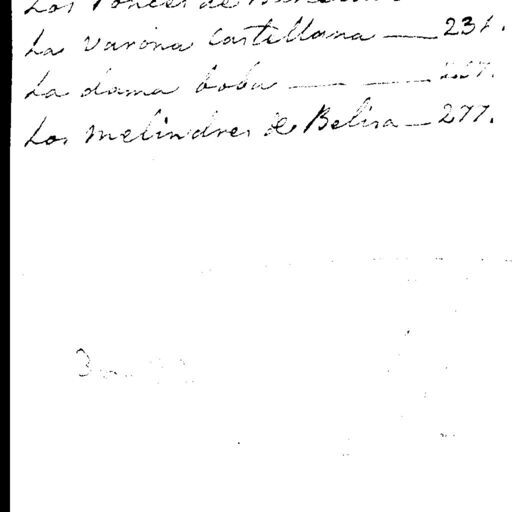 Los Ponces de
La varona Castellana — 231.
La dama boba — — 257.
Los melindres de Belisa — 277.